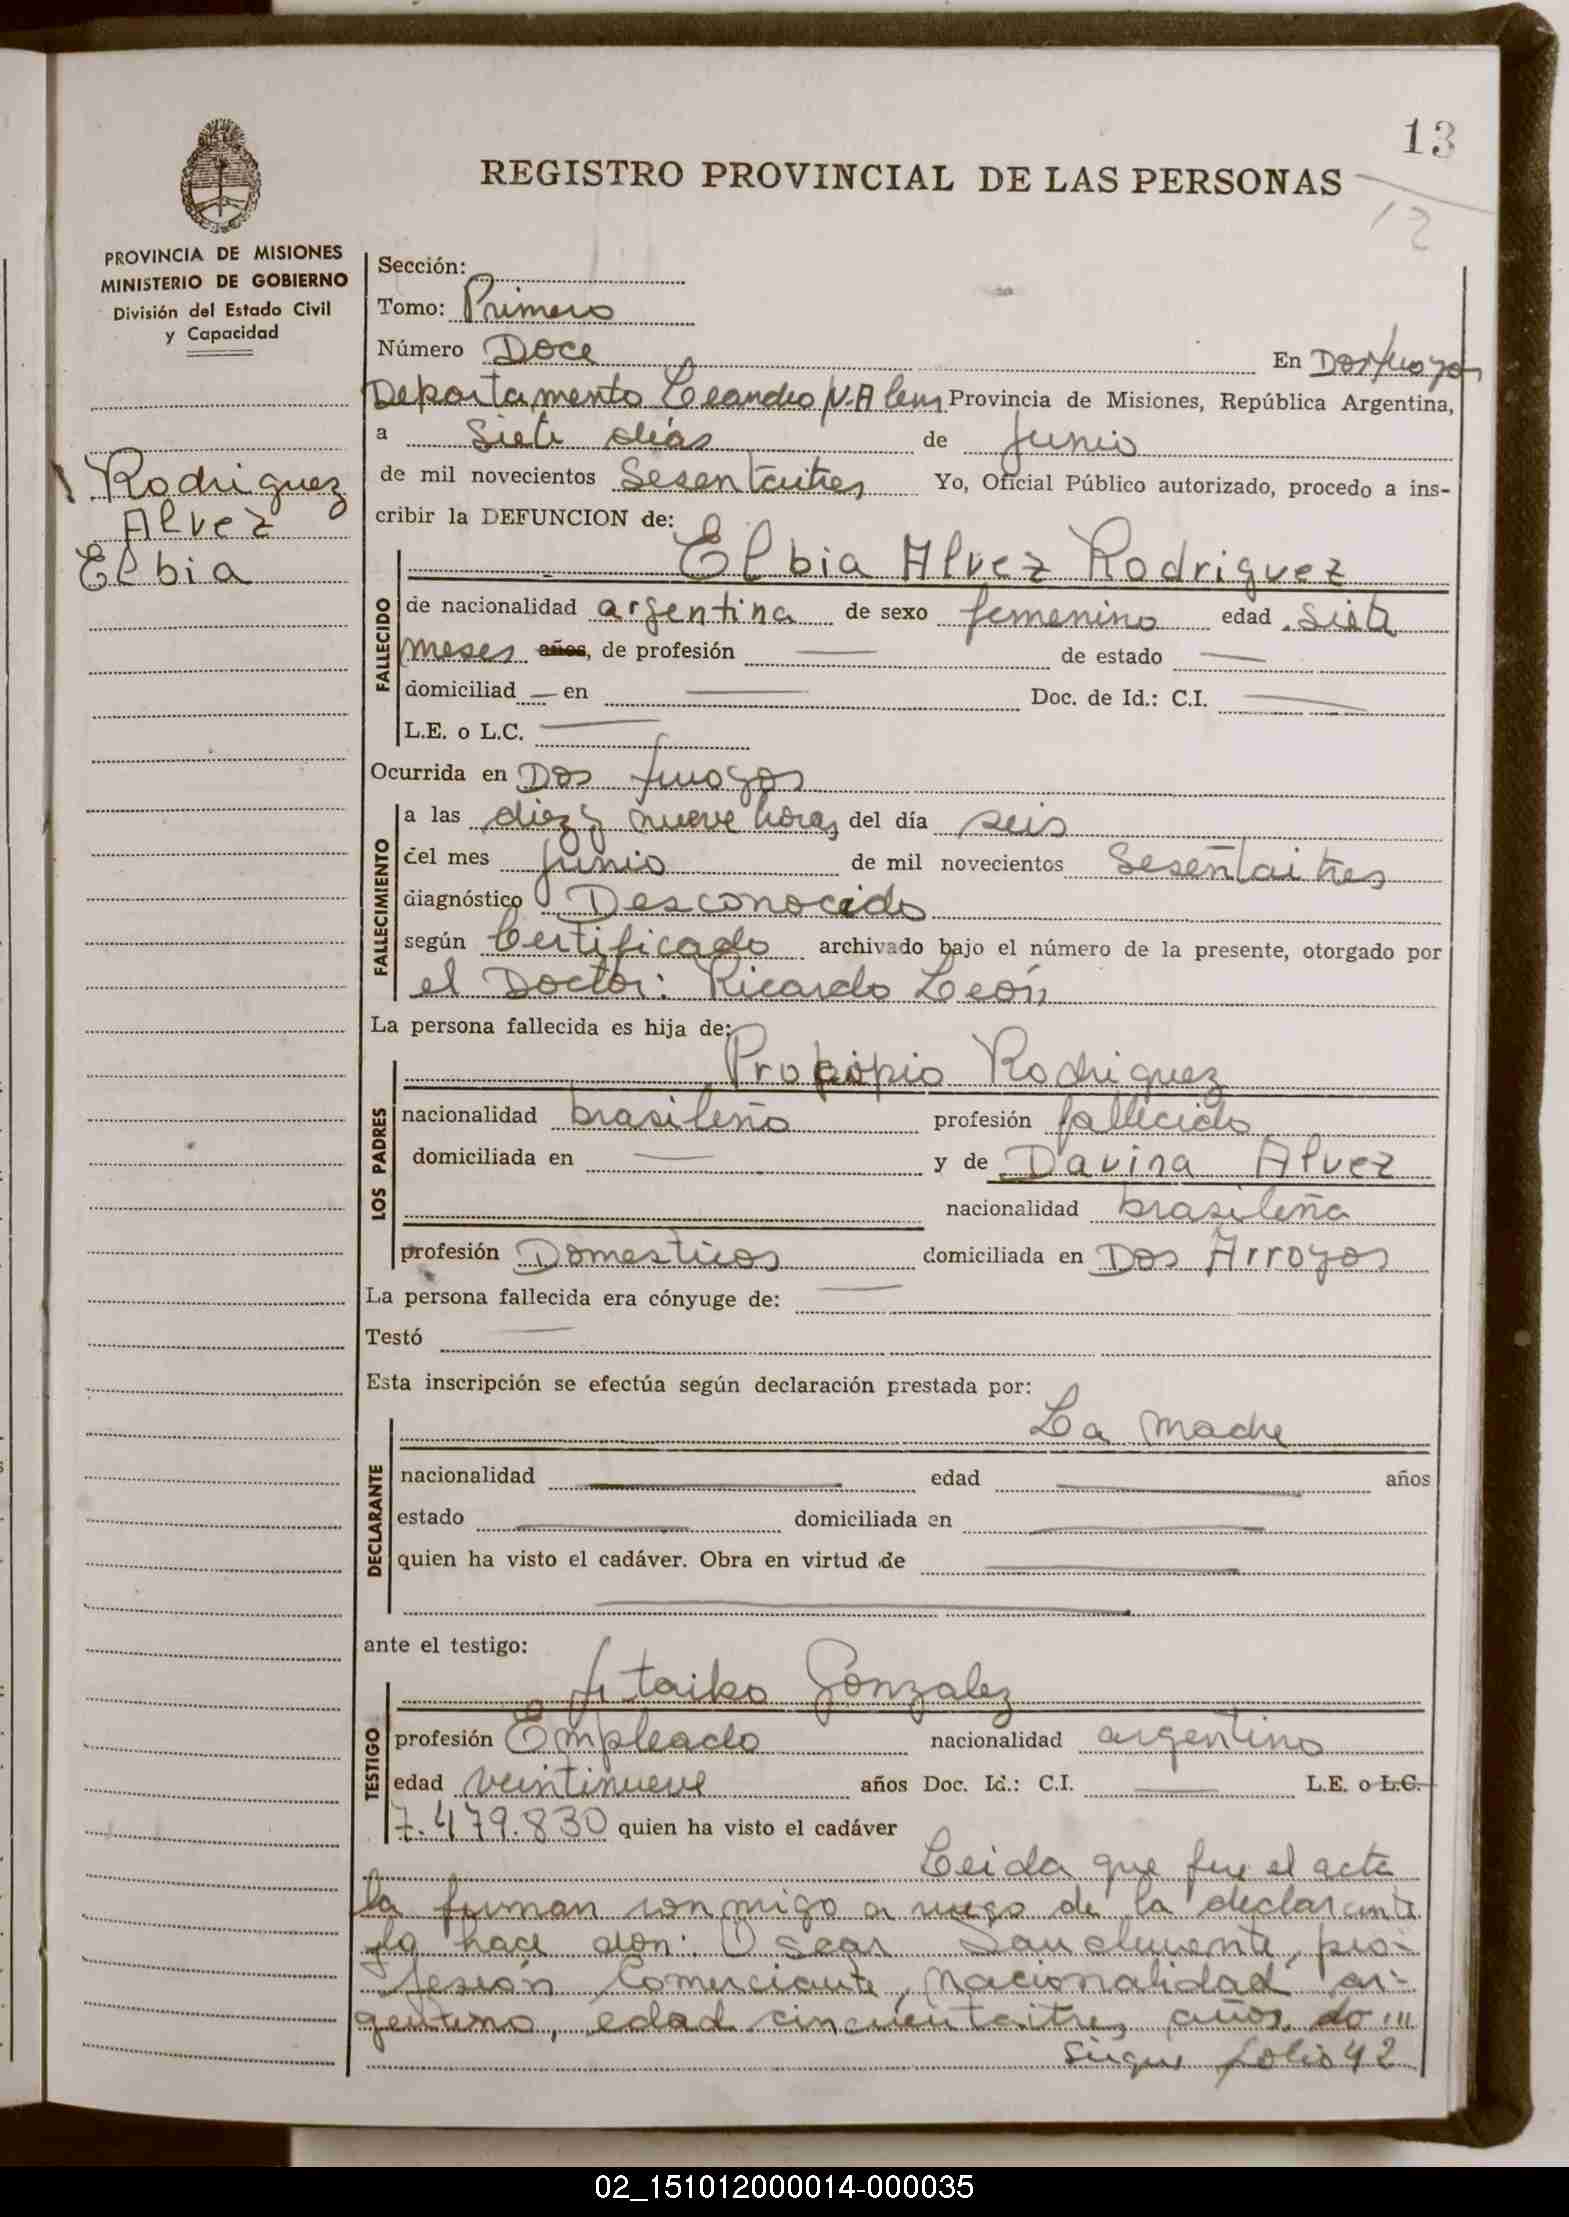 13
REGISTRO PROVINCIAL DE LAS PERSONAS
12
PROVINCIA DE MISIONES
MINISTERIO DE GOBIERNO
División del Estado Civil
y Capacidad
Rodriguez
Alvez
Elbia
Sección:
Tomo: Primero
Número Doce En Dos Arroyos
Departamento Leandro N. Alem Provincia de Misiones, República Argentina,
a Siete días de Junio
de mil novecientos Sesentaitres Yo, Oficial Público autorizado, procedo a ins-
cribir la DEFUNCION de:
Elbia Alvez Rodriguez
FALLECIDO
de nacionalidad argentina de sexo femenino edad Siete
meses años, de profesión — de estado —
domiciliad — en — Doc. de Id.: C.I. —
L.E. o L.C. —
Ocurrida en Dos Arroyos
FALLECIMIENTO
a las diez y nueve horas del día seis
del mes Junio de mil novecientos Sesentaitres
diagnóstico Desconocido
según Certificado archivado bajo el número de la presente, otorgado por
el Doctor: Ricardo León
La persona fallecida es hija de:
Rodriguez
LOS PADRES
nacionalidad brasileño profesión fallecido
domiciliada en — y de Davina Alvez
nacionalidad brasileña
profesión Domesticos domiciliada en Dos Arroyos
La persona fallecida era cónyuge de: —
Testó —
Esta inscripción se efectúa según declaración prestada por:
La madre
DECLARANTE
nacionalidad — edad — años
estado — domiciliada en —
quien ha visto el cadáver. Obra en virtud de —
ante el testigo:
Gonzalez
TESTIGO
profesión Empleado nacionalidad argentino
edad veintinueve años Doc. Id.: C.I. — L.E. o L.C.
7.479.830 quien ha visto el cadáver
Leida que fue el acta
la firman conmigo a ruego de la declarante
lo hace don: Oscar Sanclemente, pro-
fesión Comerciante, nacionalidad ar-
gentino, edad cincuentaitres años, do '''
Sigue folio 42
02_151012000014-000035